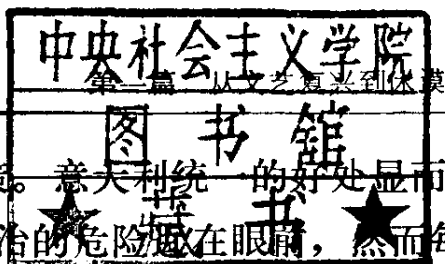 中央社会主义学院
篇 从文艺复兴到休谟
图书馆
意大利统一的好处显而
藏书
治的危险迫在眼前，然而